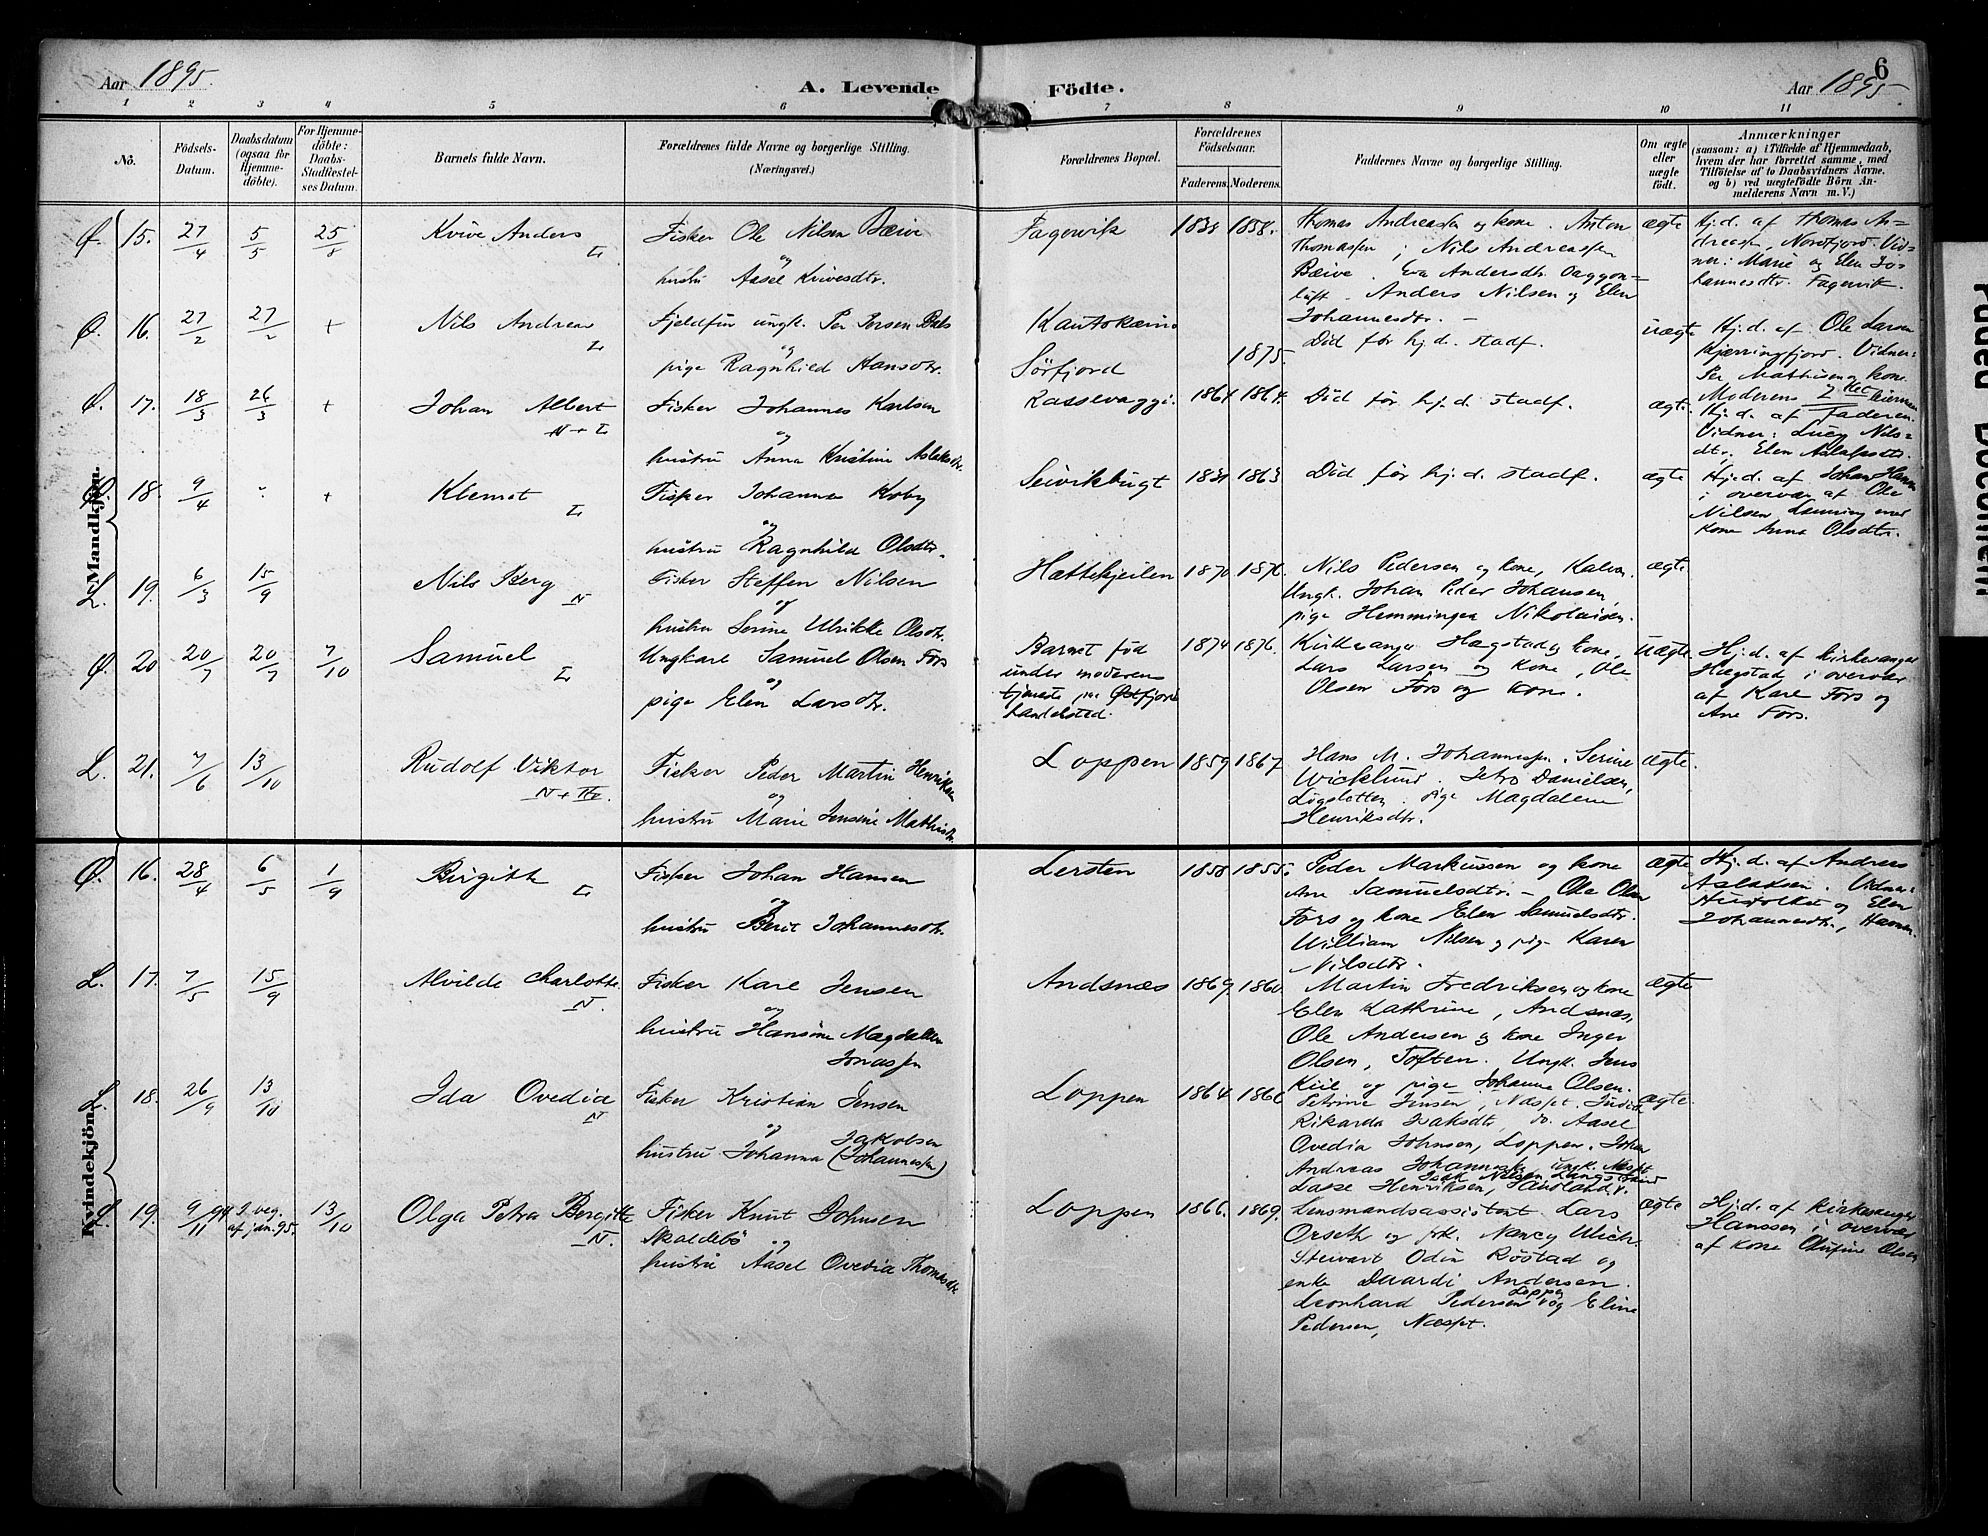 Aar 1895. A. Levende Födte. Aar 1895 6
1 2 3 4 5 6 7 8 9 10 11
No. Födsels-Datum. Daabsdatum (ogsaa för Hjemme-döbte). For Hjemme-döbte: Daabs-Stadfæstel-ses Datum. Barnets fulde Navn. Forældrenes fulde Navne og borgerlige Stilling. (Næringsvei.) Forældrenes Bopæl. Forældrenes Födselsaar. Faderens. Moderens. Faddernes Navne og borgerlige Stilling. Om ægte eller uægte födt. Anmærkninger (saasom: a) i Tilfælde af Hjemmedaab, hvem der har forrettet samme, med Tilföielse af to Daabsvidners Navne. og b) ved uægtefödte Börn An-melderens Navn m. V.)
Mandkjön.
Ø. 15. 27/4 5/5 25/8 Kvive Anders L Fisker Ole Nilsen Bæive Fagervik 1858. Thomas Andreassen og kone. Anton ægte Hj.d. af Thomas An-
Thomassen; Nils Andreassen dreassen, Nordfjord. Vid-
og Bæive. Eva Andersdtr. ner: Marie og Elen Jo-
hustru Aasel Kvivesdtr. Anders Nilsen og Elen hannesdtr. Fagervik.
Johannesdtr. -
Ø. 16. 27/2 27/2 + Nils Andreas L Fjeldfin ungk. Per Kautokeino Död för hj.d. stadf. uægte Hj.d. af Ole Larsen
og 1875. Kjærringfjord. Vidner:
pige Ragnhild Hansdtr. Sörfjord Per Mathisen og kone
Moderens 2det
Ø. 17. 18/3 26/3 + Johan Albert N + L Fisker Johannes Karlsen 1864 1864. Död för hj.d. stadf. ægte. Hj.d. af Faderen
og Vidner: Lucy Nils-
hustru Anna Kristine Aslaksdtr. dtr. Elen
18. 9/4 + Klemet L Fisker Johannes Koby Seivikbugt 1863 Död för hj.d. stadf. ægte Hj.d. af Johan Hansen
og i overvær af Ole
hustru Ragnhild Olsdtr. Nilsen
kone Anna Olsdtr.
L. 19. 6/3 15/9 Nils Berg N Fisker Steffen Nilsen Hættekjeilen 1870 1876. Nils Pedersen og kone, ægte
og Ungk. Johan Peder Johansen,
hustru Serine Ulrikke Olsdtr. pige Hemmingea Nikolaisen.
Ø. 20 20/7 20/7 7/10 Samuel L Ungkarl Samuel Olsen Fors Barnet föd 1874 1876. Kirkesanger Hægstad og kone, Uægte. Hj.d. af kirkesanger
og under moderens Lars Larsen og kone, Ole Hægstad i overvær
pige Elen Larsdtr. tjeneste paa Øxfjord Olsen Fors og kone. af Kare Fors og
handelssted. Ane Fors.
L. 21. 7/6 13/10 Rudolf Viktor N + Fisker Peder Martin Henriksen Loppen 1859 1867 Hans M. Johannessen. Serine ægte.
og Wicklund. Danielsen,
hustru Marie Jensine Mathisdtr. pige Magdalene
Henriksdtr.
Kvindekjön.
Ø. 16. 28/4 6/5 1/9 Birgitte L Fisker Johan Hansen Lersten 1858 1855. Peder Markussen og kone ægte Hj.d. af Andreas
og Ane Samuelsdtr. - Ole Olsen Aslaksen. Vidner:
hustru Berit Johannesdtr. Fors og kone Elen Samuelsdtr. Husfolket og Elen
William Nilsen og pige Karen Johannesdtr.,
Nilsdtr.
L. 17. 7/5 15/9 Alvilde Charlotte N. Fisker Karl Jensen Andsnæs 1869. 1860. Martin Fredriksen og kone ægte
og Elen Kathrine, Andsnæs,
hustru Hansine Magdalen Ole Andersen og kone Inger
Jonassen Olsen, Toften. Ungk. Jens
Kiil og pige Johanna Olsen.
L. 18. 26/9 13/10 Ida Ovedia N Fisker Kristian Jensen Loppen 1864 1866 Petrine Jensen, ægte.
og Jakobsen Rikarda Isaksdtr, Aasel
hustru Johanna (Johannessen) Ovedia Johnsen, Loppen. Johan
Andreas ungk.
Isak Nilsen
Lasse Henriksen, Sandland.
19. 9/11 94 I beg. af jan. 95. 13/10 Olga Petra Bergitte N. Fisker Knut Johnsen Loppen 1866. 1869. Lensmandsassistent Lars ægte Hj.d. af kirkesanger
Skaldebö og Orseth og frk. Nancy Ulich. Hanssen i overvær
hustru Aasel Ovedia Thomasdtr Steivart Odin Röstad og af kone Olufine Olsen
enke Andersen.
Loppen
Leonhard Pedersen og Eline
Pedersen,